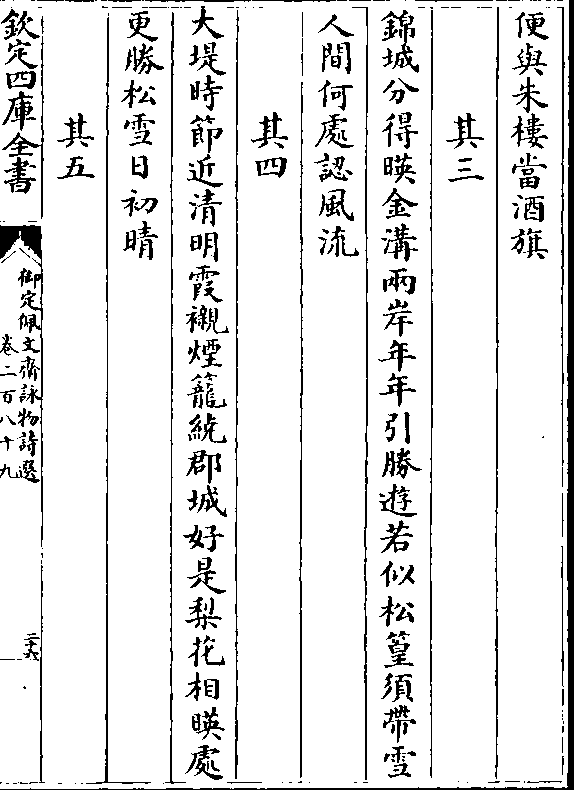 便與朱樓當酒旗
其三
錦城分得暎金溝兩岸年年引勝遊若似松篁須帶雪
人間何處認風流
其四
大堤時節近清明霞襯煙籠繞郡城好是梨花相暎處
更勝松雪日初晴
其五
欽定四庫全書
御定佩文齋詠物詩選
卷二百八十九
二十六